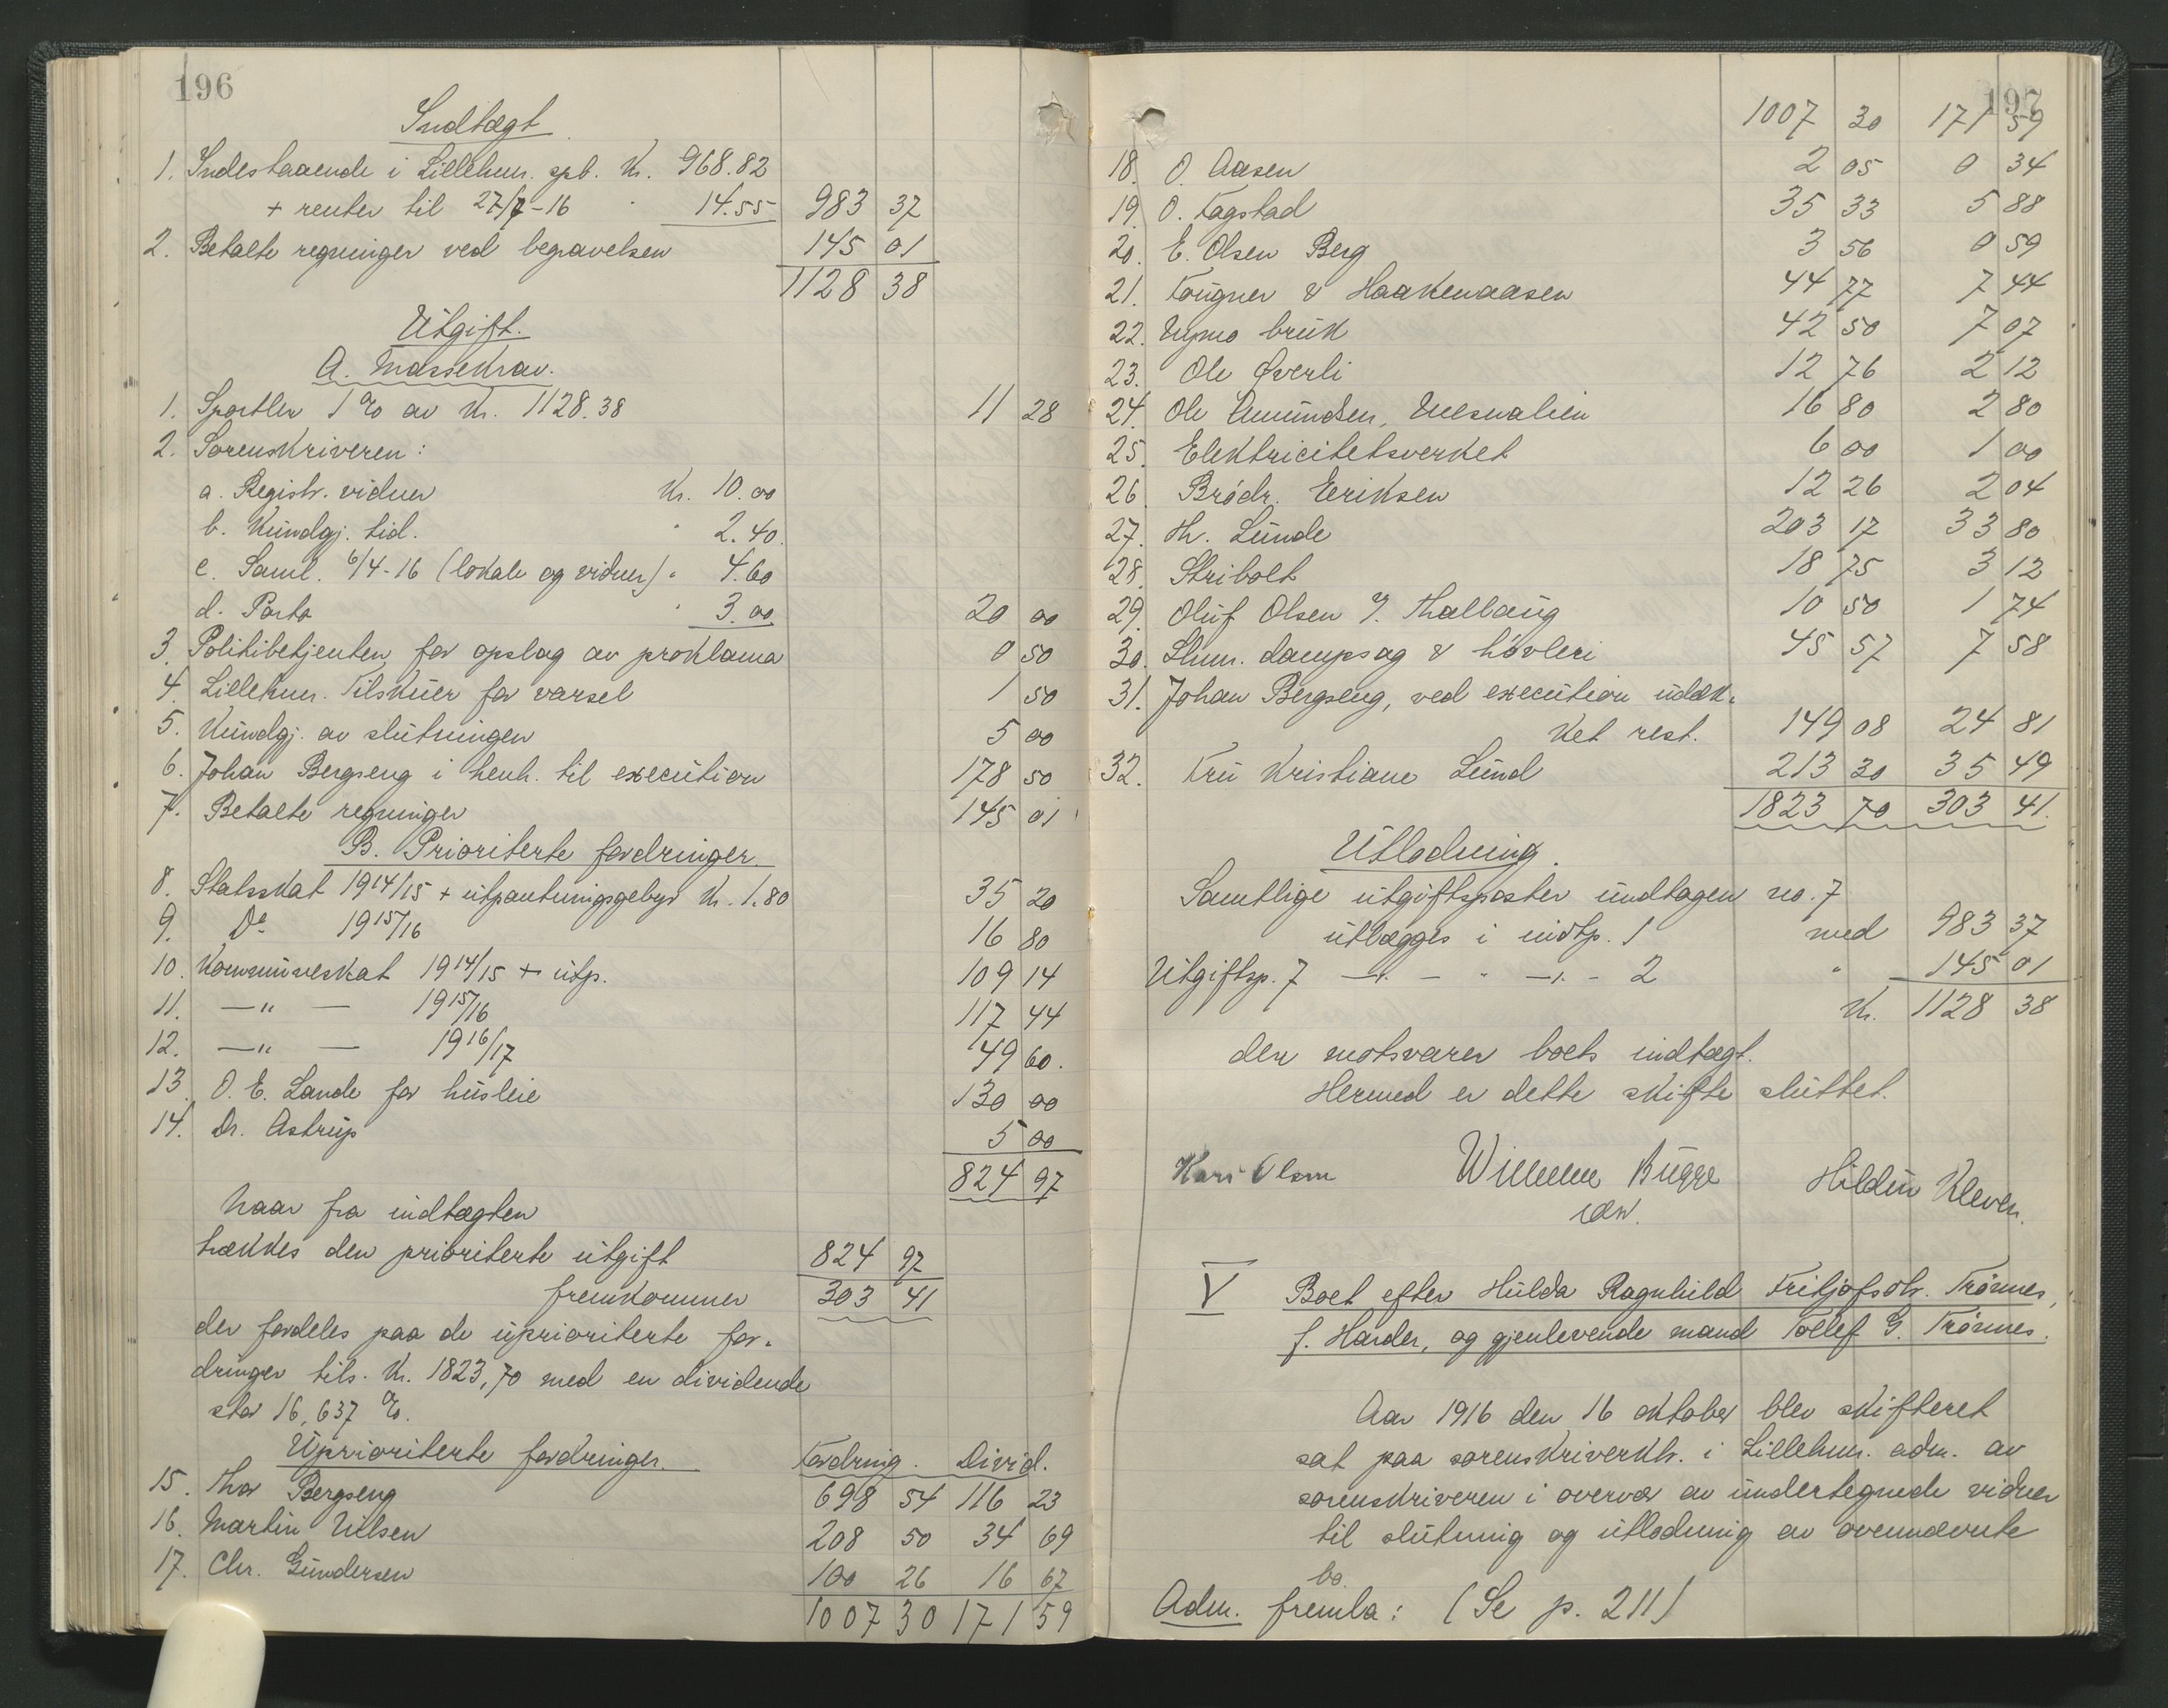 196
Indtægt
1. Indestaaende i Lillehm. spb. Kr. 968.82
+ renter til 27/7-16 " 14.55 983 37
2. Betalte regninger ved begravelsen 145 01
1128 38
Utgift.
A. Massekrav.
1. Sportler 1 % av Kr. 1128.38 11 28
2. Sorenskriveren:
a. Registr. vidner Kr. 10.00
b. Kundgj. tid. " 2.40.
c. Saml. 6/4-16 (lokale og vidner) " 4.60
d. Porto " 3.00 20 00
3. Politibetjenten for opslag av proklama 0 50
4. Lillehm. Tilskuer for varsel 1 50
5. Kundgj. av slutningen 5 00
6. Johan Bergseng i henh. til execution 178 50
7. Betalte regninger 145 01
B. Prioriterte fordringer.
8. Statsskat 1914/15 + utpantningsgebyr Kr. 1.80 35 20
9. Do 1915/16 16 80
10. Kommuneskat 1914/15 + utp. 109 14
11. —"— 1915/16 117 44
12. —"— 1916/17 49 60.
13 O. E. Lande for husleie 130 00
14. Dr. Astrup 5 00
824 97
Naar fra indtægten
trækkes den prioriterte utgift 824 97
fremkommer 303 41
der fordeles paa de uprioriterte for-
dringer tils. Kr. 1823,70 med en dividende
stor 16,637 %.
Uprioriterte fordringer. Fordring. Divid.
15. Thor Bergseng 698 54 116 23
16. Martin Nilsen 208 50 34 69
17. Chr. Gundersen 100 26 16 67
1007 30 171 59
197
1007 30 171 59
18. O. Aasen 2 05 0 34
19. O. Fagstad 35 33 5 88
20. E. Olsen Berg 3 56 0 59
21. Fougner & Haakenaasen 44 77 7 44
22. Nymo bruk 42 50 7 07
23. Ole Øverli 12 76 2 12
24. Ole Amundsen, Mesnalien 16 80 2 80
25. Elektricitetsverket 6 00 1 00
26 Brødr. Eeriksen 12 26 2 04
27. Th. Lunde 203 17 33 80
28. Stribolt 18 75 3 12
29. Oluf Olsen v. Thallaug 10 50 1 74
30. Lhm. dampsag & høvleri 45 57 7 58
31. Johan Bergseng, ved execution udæk-
ket rest. 149 08 24 81
32. Fru Kristiane Lund 213 30 35 49
1823 70 303 41.
Utlodning.
Samtlige utgiftsposter undtagen no. 7
utlægges i indtp. 1 med 983 37
Utgiftsp. 7 —"— " —"— 2 " 145 01
Kr. 1128 38
der motsvarer boets indtægt.
Hermed er dette skifte sluttet.
Kari Olsen Wilhelm Bugge Hildur Kleven.
edv.
V Boet efter Hulda Ragnhild Fritjofsdtr. Trønnes,
f. Harder, og gjenlevende mand Tollef G. Trønnes.
Aar 1916 den 16 oktober blev skifteret
sat paa sorenskriverktr. i Lillehm. adm. av
sorenskriveren i overvær av undertegnede vidner
til slutning og utlodning av ovennævnte
bo.
Adm. fremla: (Se p. 211)